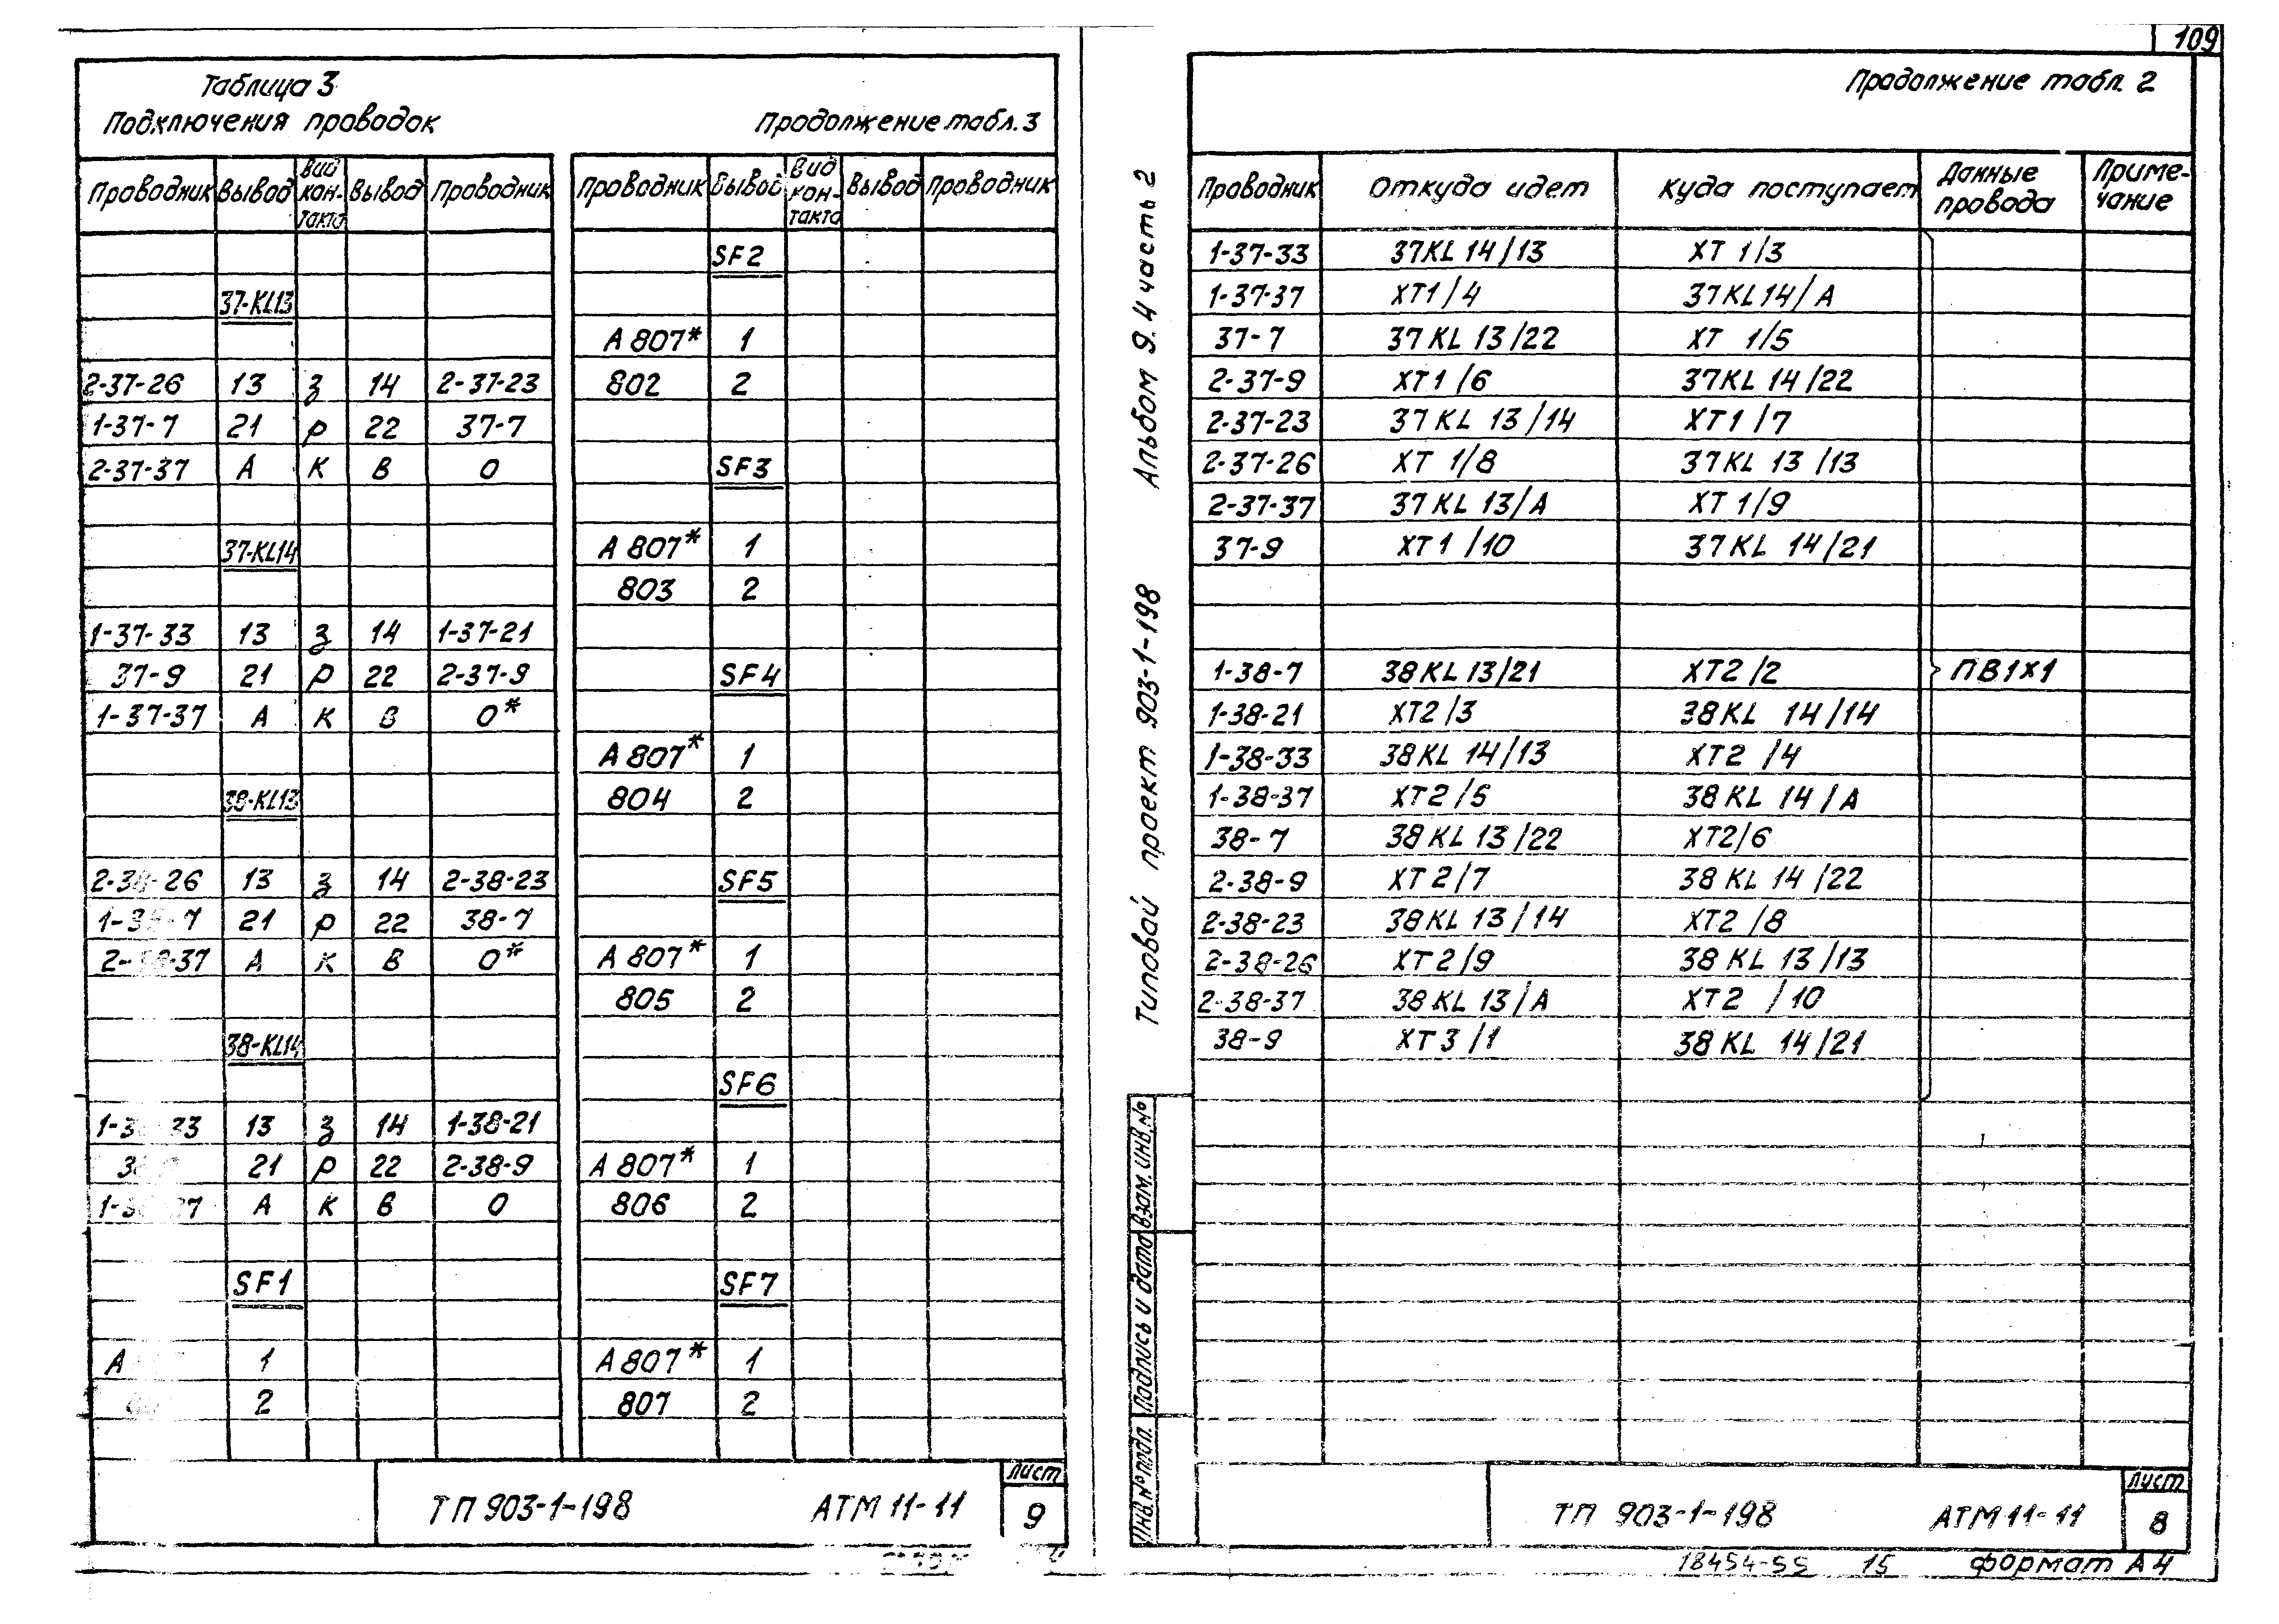 Таблица 3
Подключения проводок
Продолжение табл. 3
Проводник Вывод Вид кон-такта Вывод Проводник
37-KL13
2-37-26 13 з 14 2-37-23
1-37-7 21 р 22 37-7
2-37-37 А к В 0
37-KL14
1-37-33 13 з 14 1-37-21
37-9 21 р 22 2-37-9
1-37-37 А к В 0*
38-KL13
2-38-26 13 з 14 2-38-23
1-38-7 21 р 22 38-7
2-38-37 А к В 0*
38-KL14
13 з 14 1-38-21
21 р 22 2-38-9
А к В 0
SF1
А 1
2
Проводник Вывод Вид кон-такта Вывод Проводник
SF2
А 807* 1
802 2
SF3
А 807* 1
803 2
SF4
А 807* 1
804 2
SF5
А 807* 1
805 2
SF6
А 807* 1
806 2
SF7
А 807* 1
807 2
ТП 903-1-198 АТМ 11-11
Лист
9
109
Продолжение табл. 2
Альбом 9.4 часть 2
Типовой проект 903-1-198
Проводник Откуда идет Куда поступает Данные провода Приме-чание
1-37-33 37KL 14/13 ХТ 1/3
1-37-37 ХТ1/4 37KL14/А
37-7 37KL 13/22 ХТ 1/5
2-37-9 ХТ1/6 37KL 14/22
2-37-23 37KL 13/14 ХТ1/7
2-37-26 ХТ 1/8 37KL 13/13
2-37-37 37KL 13/А ХТ 1/9
37-9 ХТ1/10 37KL 14/21
1-38-7 38KL 13/21 ХТ2/2 ПВ1х1
1-38-21 ХТ2/3 38KL 14/14
1-38-33 38KL 14/13 ХТ2/4
1-38-37 ХТ2/5 38KL 14/А
38-7 38KL 13/22 ХТ2/6
2-38-9 ХТ2/7 38KL 14/22
2-38-23 38KL 13/14 ХТ2/8
2-38-26 ХТ2/9 38KL 13/13
2-38-37 38KL 13/А ХТ2/10
38-9 ХТ3/1 38KL 14/21
Инв.№ подл. Подпись и дата Взам. инв.№
ТП 903-1-198 АТМ 11-11
Лист
8
18454-55 15 формат А4